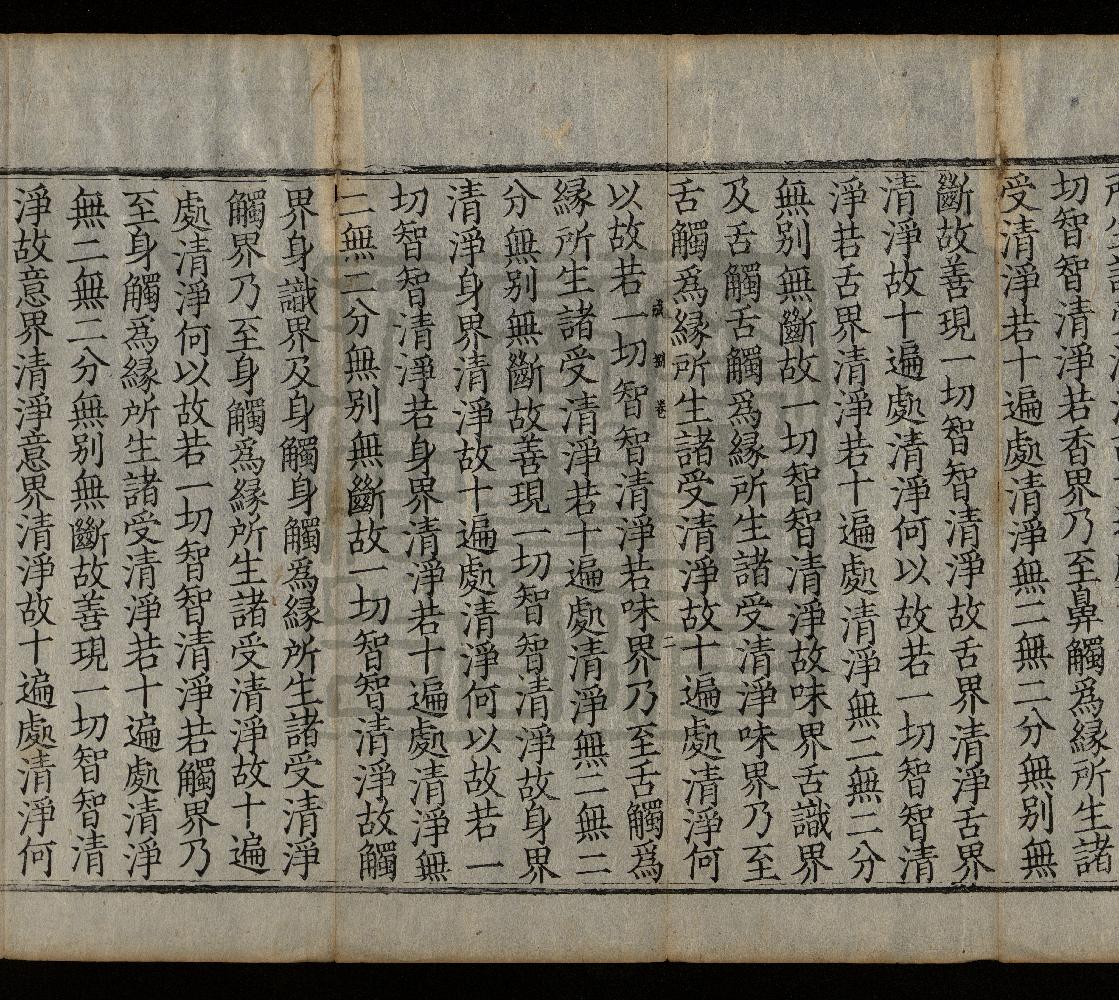 切智智清淨若香界乃至鼻觸爲緣所生諸
受清淨若十遍處清淨無二無二分無别無
斷故善現一切智智清淨故舌界清淨舌界
清淨故十遍處清淨何以故若一切智智清
淨若舌界清淨若十遍處清淨無二無二分
無别無斷故一切智智清淨故味界舌識界
及舌觸舌觸爲緣所生諸受清淨味界乃至
舌觸爲緣所生諸受清淨故十遍處清淨何
以故若一切智智清淨若味界乃至舌觸爲
緣所生諸受清淨若十遍處清淨無二無二
分無别無斷故善現一切智智清淨故身界
清淨身界清淨故十遍處清淨何以故若一
切智智清淨若身界清淨若十遍處清淨無
二無二分無别無斷故一切智智清淨故觸
界身識界及身觸身觸爲緣所生諸受清淨
觸界乃至身觸爲緣所生諸受清淨故十遍
處清淨何以故若一切智智清淨若觸界乃
至身觸爲緣所生諸受清淨若十遍處清淨
無二無二分無别無斷故善現一切智智清
淨故意界清淨意界清淨故十遍處清淨何